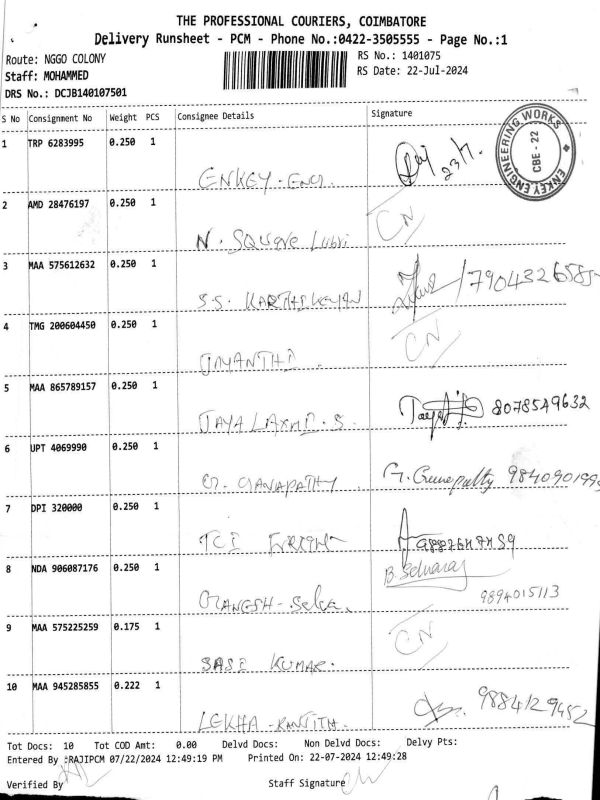 THE PROFESSIONAL COURIERS, COIMBATORE
Delivery Runsheet - PCM - Phone No.:0422-3505555 - Page No.:1
Route: NGGO COLONY RS No.: 1401075
Staff: MOHAMMED RS Date: 22-Jul-2024
DRS No.: DCJB140107501
S No Consignment No Weight PCS Consignee Details Signature
1 TRP 6283995 0.250 1
ENKEY ENGINEERING WORKS CBE - 22
23/7.
ENKEY - Eng.
2 AMD 28476197 0.250 1
CN
N. Square Lubri
3 MAA 575612632 0.250 1
S.S. KARTHIKEYAN
4 TMG 200604450 0.250 1
CN
JAYANTHI
5 MAA 865789157 0.250 1
8078549632
JAYA LAXMI. S.
6 UPT 4069990 0.250 1
G. GANAPATHY G. Ganapathy
7 DPI 320000 0.250 1
TCI
8 NDA 906087176 0.250 1
B. Selvaraj
9894015113
GANESH - Selva.
9 MAA 575225259 0.175 1
CN
SASI KUMAR.
10 MAA 945285855 0.222 1
9884129452
LEKHA - RANJITH.
Tot Docs: 10 Tot COD Amt: 0.00 Delvd Docs: Non Delvd Docs: Delvy Pts:
Entered By :RAJIPCM 07/22/2024 12:49:19 PM Printed On: 22-07-2024 12:49:28
Verified By Staff Signature